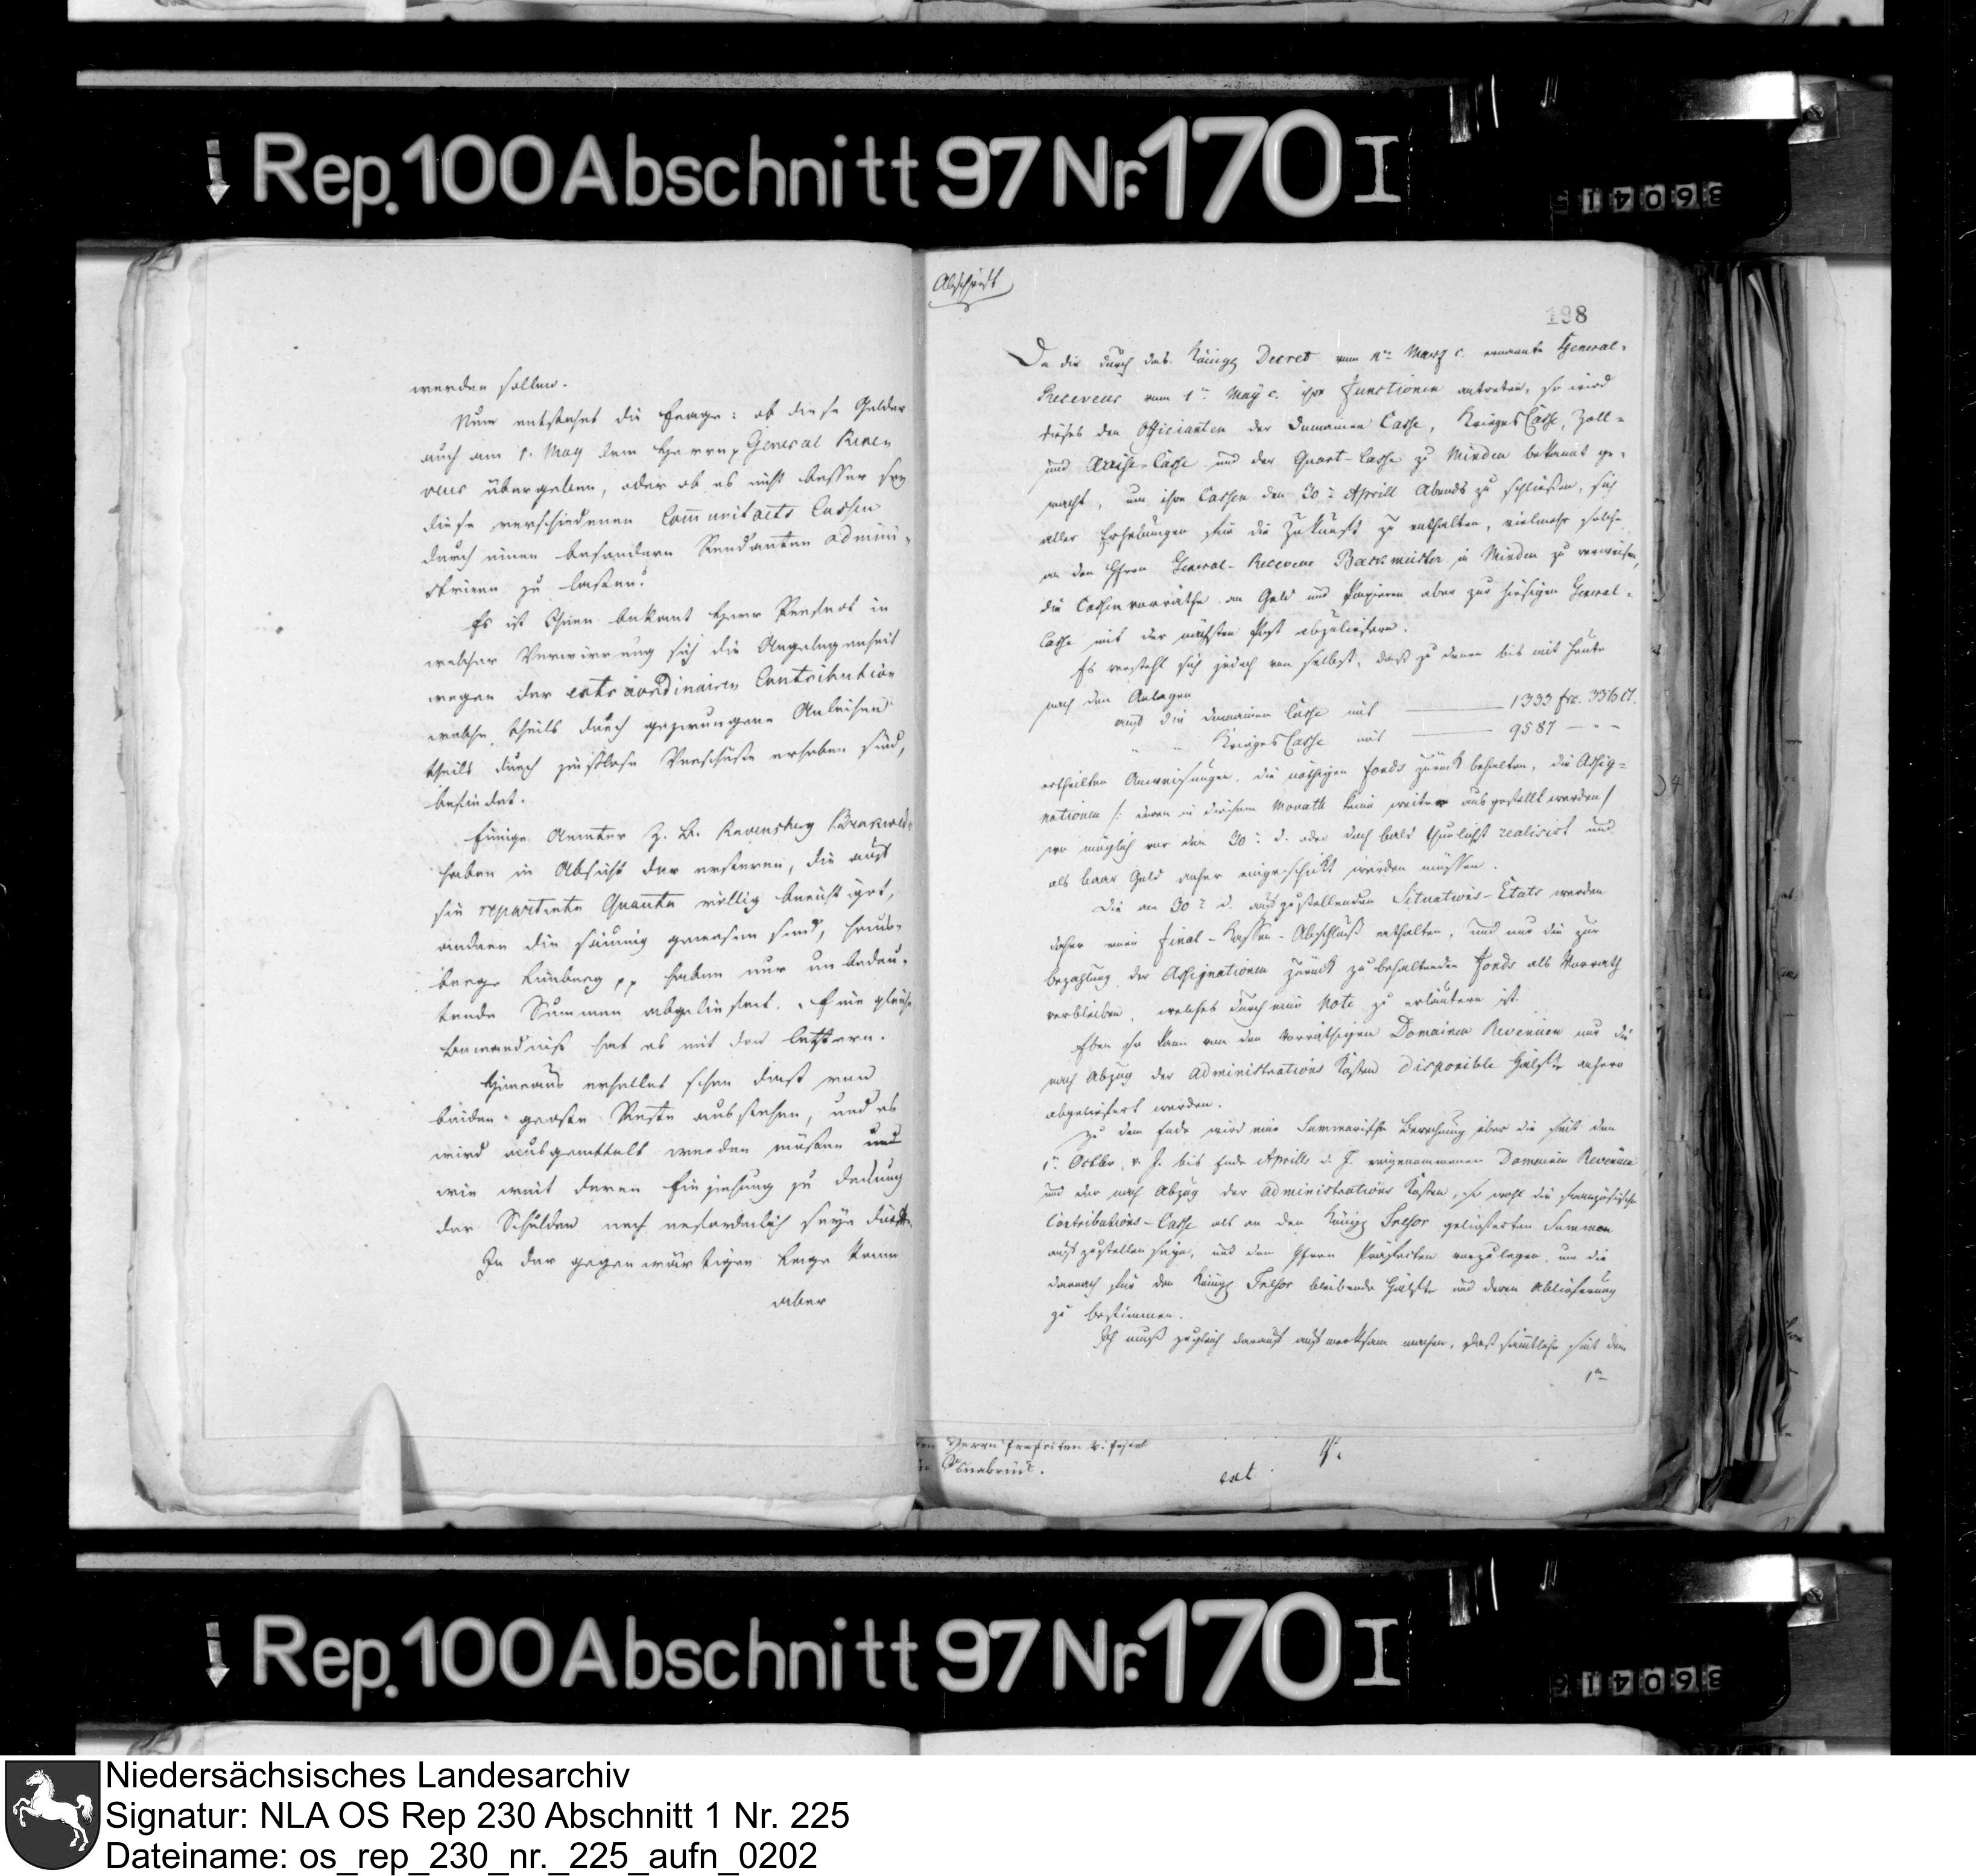 Rep. 100 Abschnitt 97 Nr. 170 I
werden sollen.
Nun entstehet die Frage: ob diese Gelder
auch am 1. May dem Herrn General Recev
veur übergeben, oder ob es nicht besser sey
diese verschiedenen Communitaets Cassen
durch einen besondern Rendanten admini-
striren zu lassen?
Es ist Ihnen bekant Herr Praefect in
welcher Verwirrung sich die Angelegenheit
wegen der extraordinairen Contribution
welche theils durch gezwungene Anleihen
theils durch zinßlose Vorschüße erhoben sind,
befindet.
Einige Aemter z. B. Ravensberg
haben in Absicht der ersteren, die auf
sie repartirte Quanta völlig berichtiget,
andere die säumig gewesen sind,
berge Limberg pp haben nur unbedeu-
tende Summen abgeliefert. Eine gleiche
Bewandniß hat es mit den letztern.
Hieraus erhellet schon daß von
beiden große Reste ausstehen, und es
wird ausgemittelt werden müßen
wie weit deren Einziehung zu Deckung
der Schulden noch erforderlich seyn dürfte.
In der gegenwärtigen Lage kann
aber
Abschrift
198
Da die durch das Königl Decret vom März c. ernannte General-
Receveur vom 1n May c. ihre Functionen antreten, so wird
dieses den Officianten der Domainen Casse, Krieges Casse, Zoll-
und Accise-Casse und der Quart-Casse zu Minden bekannt ge-
macht, um ihre Cassen den 30n Aprill Abends zu schließen, sich
aller Erhebungen für die Zukunft zu enthalten, vielmehr solche
an den Herrn General-Receveur Backmeister in Minden zu verweisen,
die Cassenvorräthe an Geld und Papieren aber zur hiesigen General-
Casse mit der nächsten Post abzuliefern.
Es versteht sich jedoch von selbst, daß zu denen bis mit heute
nach den Anlagen
auf die Domainen Casse mit 1333 fr. 33 Ct.
" " Krieges Casse mit 9587 — " —
ertheilten Anweisungen, die nöthigen Fonds zurück behalten, die Assig-
nationen /: deren in diesem Monath keine weiter ausgestellt werden /
wo möglich vor den 30n d. oder doch bald thunlichst realisirt und
als baar Geld anher eingeschickt werden müssen.
Die am 30n d. aufzustellenden Situations-Etats werden
daher einen Final-Kassen-Abschluß enthalten, und nur die zur
Bezahlung der Assignationen zurück zu behaltenden Fonds als Vorrath
verbleiben, welches durch eine Note zu erläutern ist.
Eben so kann von den vorräthigen Domainen Revenüen nur die
nach Abzug der Administrations Kosten disponible Hälfte anhero
abgeliefert werden.
Zu dem Ende wird eine Summarische Berechnung über die seit dem
1n Octbr. v. J. bis Ende Aprills d. J. eingenommenen Domainen Revenüen
und der nach Abzug der Administrations Kosten, so wohl die französische
Contributions-Casse als an den Königl Tresor gelieferten Summen
aufzustellen seyn, und dem Herrn Präfecten vorzulegen, um die
darnach für den Königl Tresor bleibende Hälfte und deren Ablieferung
zu bestimmen.
Ich muß zugleich darauf aufmerksam machen, daß sämtliche seit dem
1n
Herrn Präfecten
Osnabrück.
Rep. 100 Abschnitt 97 Nr. 170 I
Niedersächsisches Landesarchiv
Signatur: NLA OS Rep 230 Abschnitt 1 Nr. 225
Dateiname: os_rep_230_nr._225_aufn_0202